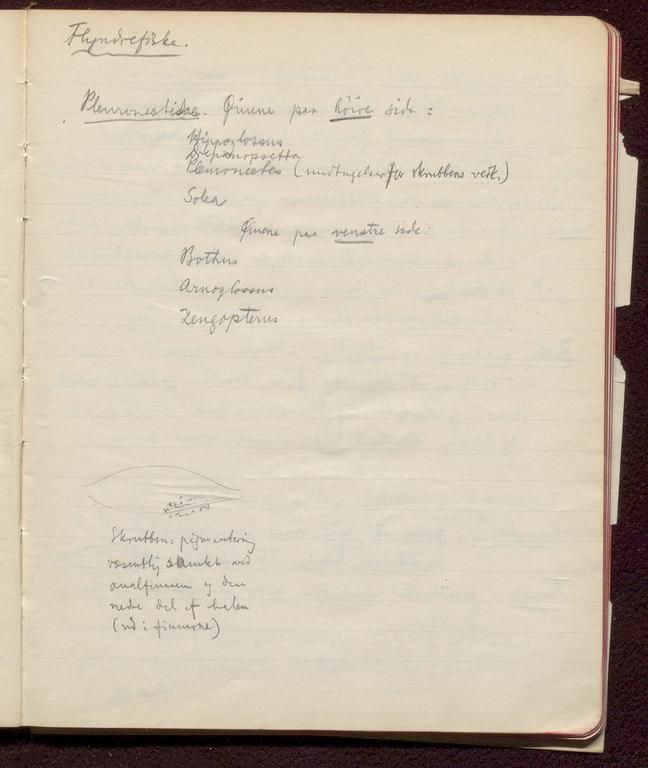 Flyndrefiske.
Pleuronectidae. Øinene paa höire side:
Hippoglossus
Drepanopsetta
Pleuronectes (undtagelser for skrubbens vedk.)
Solea
Øinene paa venstre side:
Bothus
Arnoglossus
Zeugopterus
Skrubbens pigmentering
væsentlig samlet ved
analfinnen og den
nedre del af halen
(ud i finnerne)